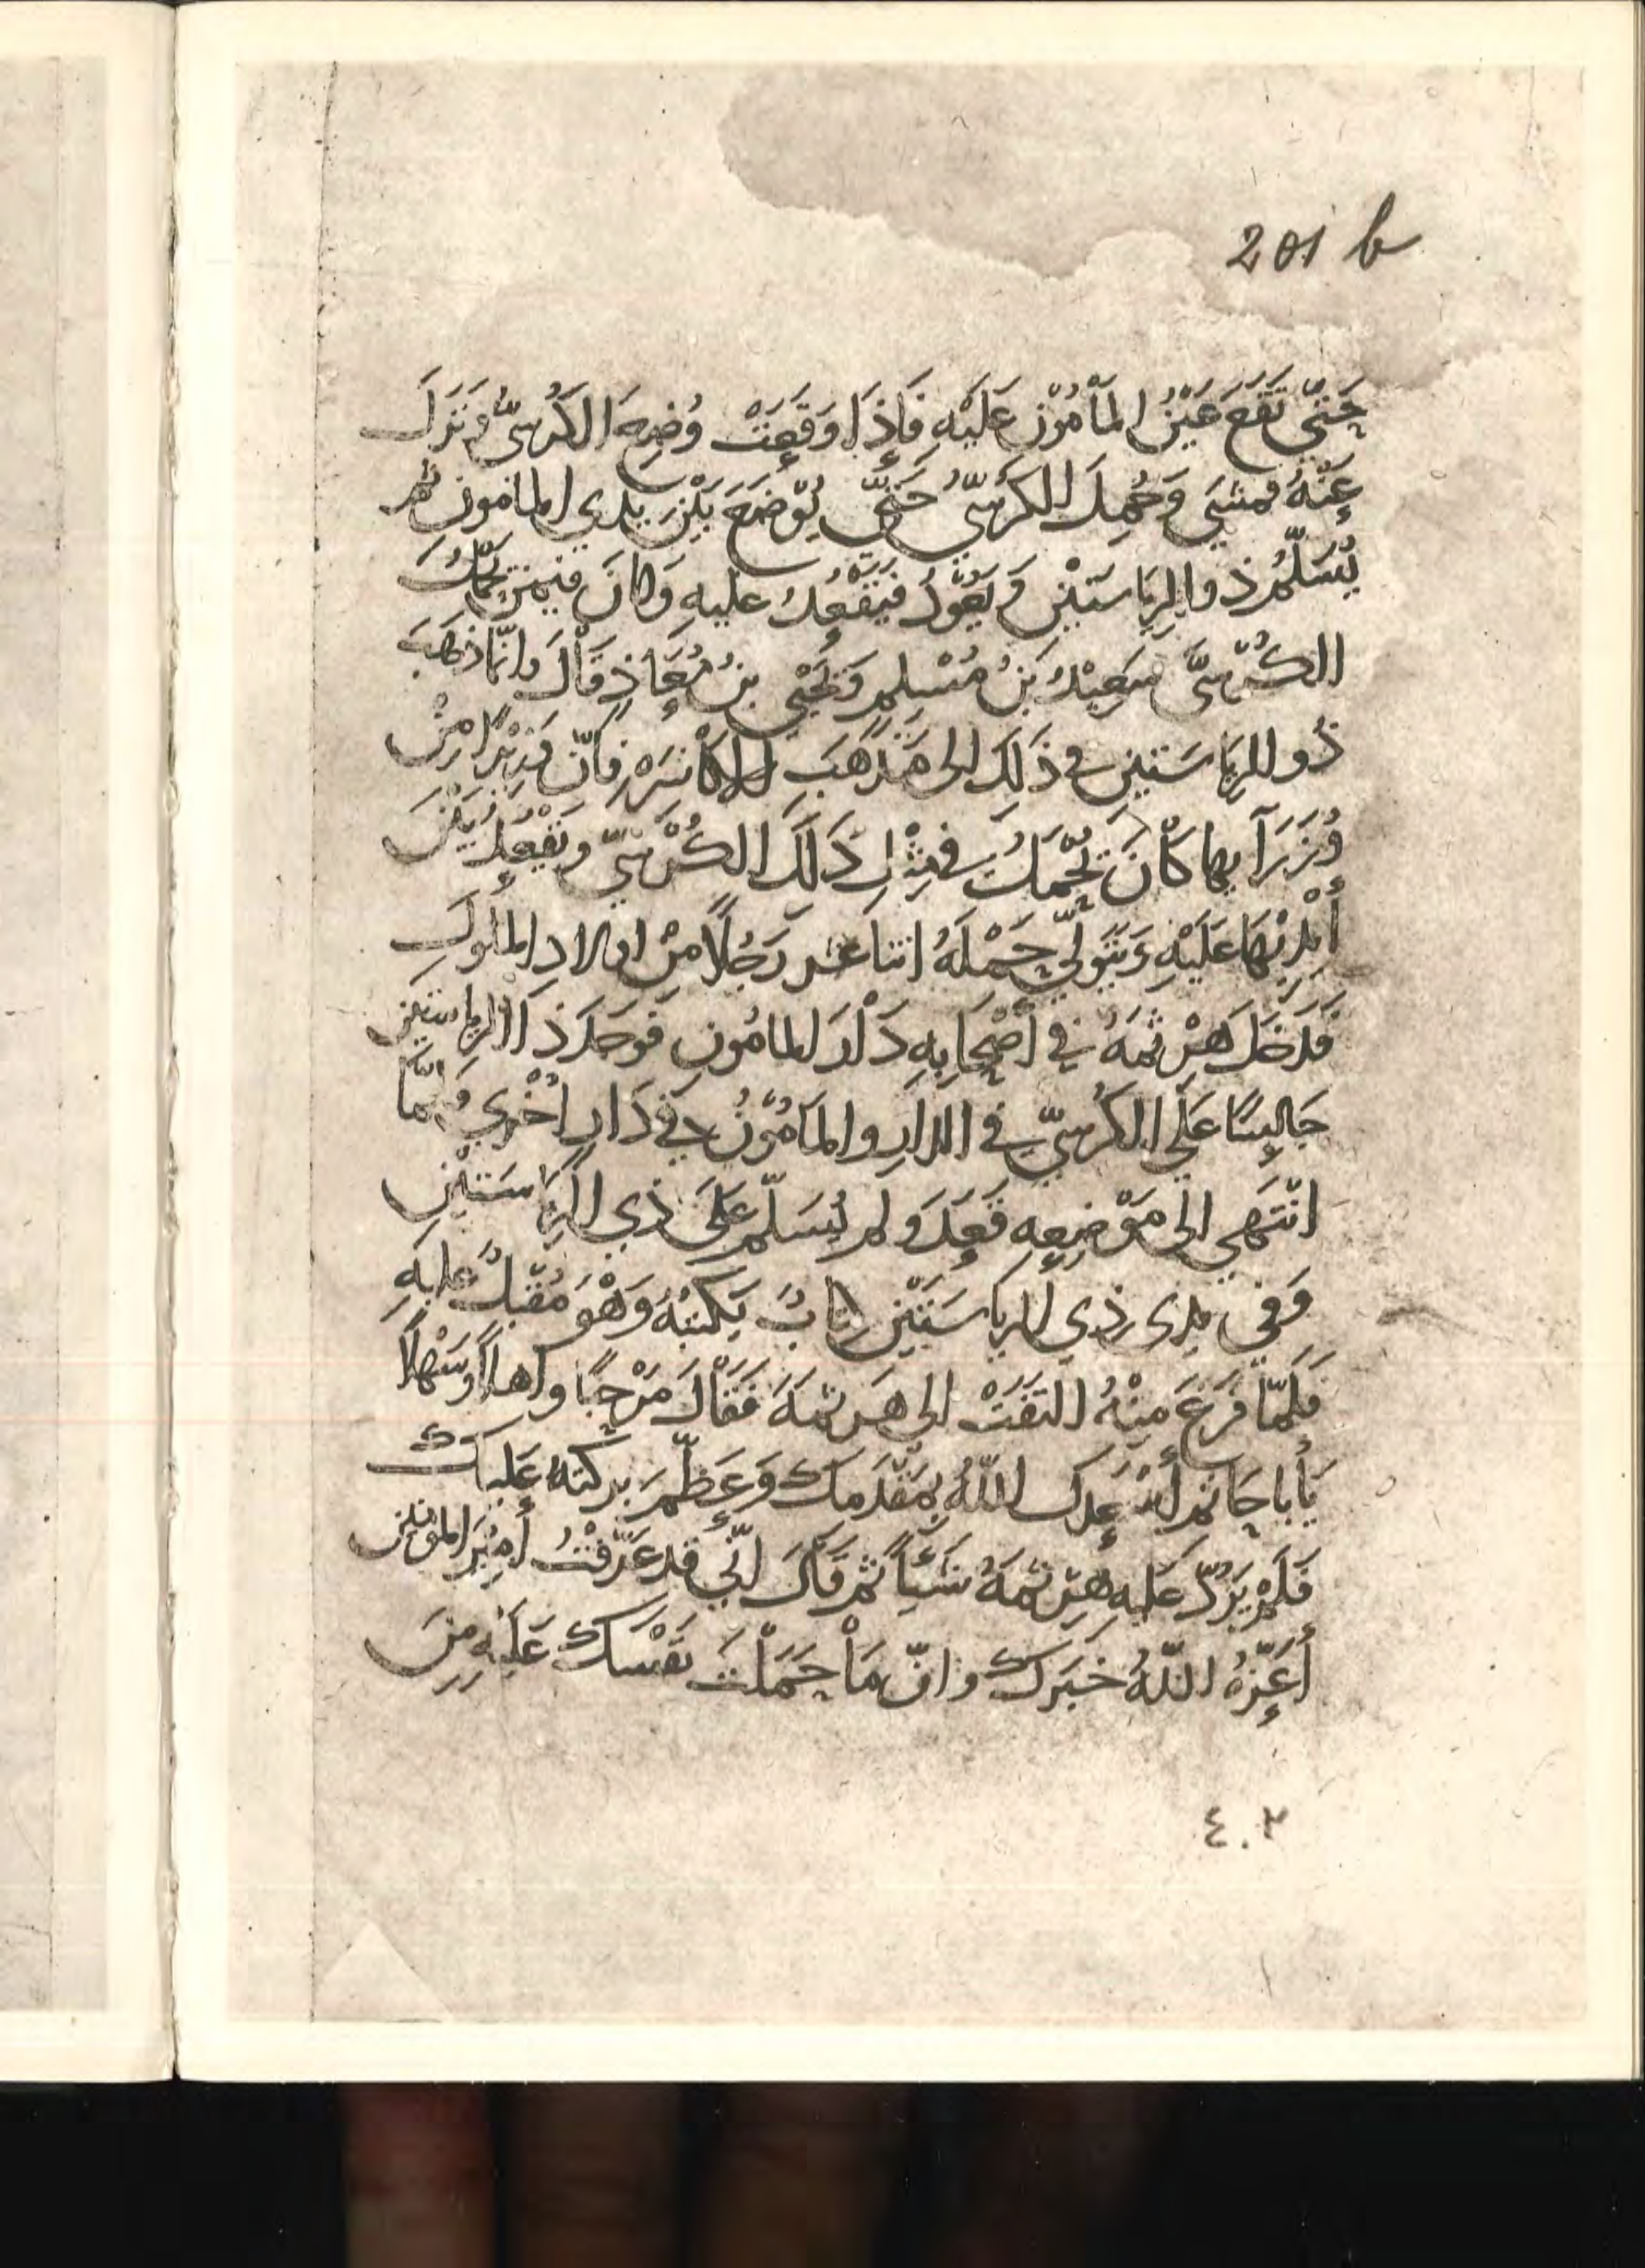 201 b
حَتّي تَقَعَ عَيْنُ المَأْمُوْن عَلَيْهِ فَإِذَا وَقَعَتْ وُضِعَ الكُرسيُّ وَنَزَلَ
عَنْهُ فمشَي وَحُمِلَ الكُرسيُّ حَتّي يُوْضَعَ بَيْنَ يدي المامون ثم
يُسَلّمُ ذو الرِيَاسَتَيْن وَيَعُوْدُ فَيَقْعُدُ عليهِ وَكانَ فيمَن يَحْمِلُ
الكُرْسيَّ سَعِيْدُ بنُ مُسْلِم وَيَحْيي بنُ مُعَاذٍ قالَ وانّما ذهَبَ
ذُو الرِيَاسَتين في ذَلِكَ الى مَذْهَبِ الاكاسَرَه فانّ وَزِيْرًا مِنْ
وُزَرَآيها كَانَ يُحْمَلُ في مِثْلِ ذَلِكَ الكُرْسيّ ويَقْعُدُ بَيْنَ
أَيْدِيْهَا عَلَيْهِ وَيَتَوَلّي حَمْلَهُ اثنا عشر رَجُلًا مِنْ اولاد الملُوكِ
فَدَخَلَ هَرْثمَهُ في أَصْحَابِهِ دَارَ المامُونِ فَوَجَدَ ذَا الرياستين
جَالِسًا عَلَي الكُرْسيّ في الدارِ والمَامُوْنُ في دَارٍ اُخْري فلمّا
انْتَهَي الى مَوْضِعِهِ قَعَدَ ولم يُسَلّم عَلَى ذي الرِيَاسَتَيْنِ
وَفي يدى ذي الرياسَتَيْنِ كتابٌ يَكتبُهُ وَهْوَ مُقْبلٌ عليهِ
فَلَمّا فَرَغَ مِنْهُ التَفَتَ الى هَرثمَهَ فَقَالَ مَرْحبًا واهلًا وَسَهْلًا
يَأبا حَاتم أَسْعَدكَ اللّهُ بِمَقْدَمِكَ وَعَظّمَ بركتهُ عَليكَ
فَلَمْ يَرُدّ عَليهِ هَرْثَمَهُ شَيْأً ثم قَالَ انّي قد عَرّفْتُ أَمِيْرَ المؤمنين
أَعَزّهُ اللّهُ خَبَركَ وانّ مَا حَمَلْتَ نَفْسَكَ عَلَيْهِ مِنَ
٤٠٢